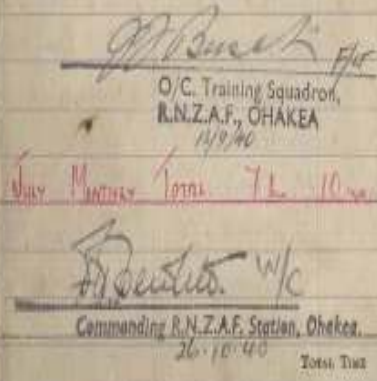 F/Lt
O/C. Training Squadron,
R.N.Z.A.F., OHAKEA
12/9/40
July Monthly Total 7 h 10 m
W/C
Commanding R.N.Z.A.F. Station, Ohakea.
26-10-40
TOTAL TIME